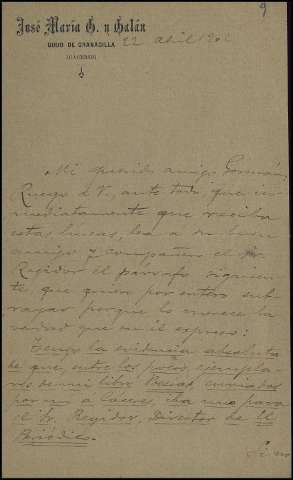 9
José María G. y Galán
GUIJO DE GRANADILLA
(CÁCERES)
22 abril 902
Mi querido amigo Germán,
Ruego á V., ante todo, que in-
mediatamente que reciba
estas líneas, lea a su buen
amigo y compañero el Sr.
Regidor el párrafo siguien-
te, que quiero por entero sub-
rayar porque lo merece la
verdad que en él expreso:
Tengo la evidencia absoluta
de que, entre los pocos ejempla-
res de mi libro enviados
por mí a Cáceres, iba uno para
el Sr. Regidor, Director de El
Periódico.